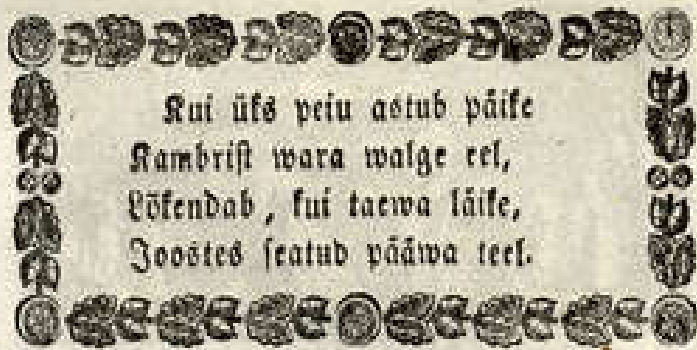 Kui üks peiu astub päike
Kambrist wara walge eel,
Lökendab, kui taewa läike,
Joostes seatud pääwa teel.